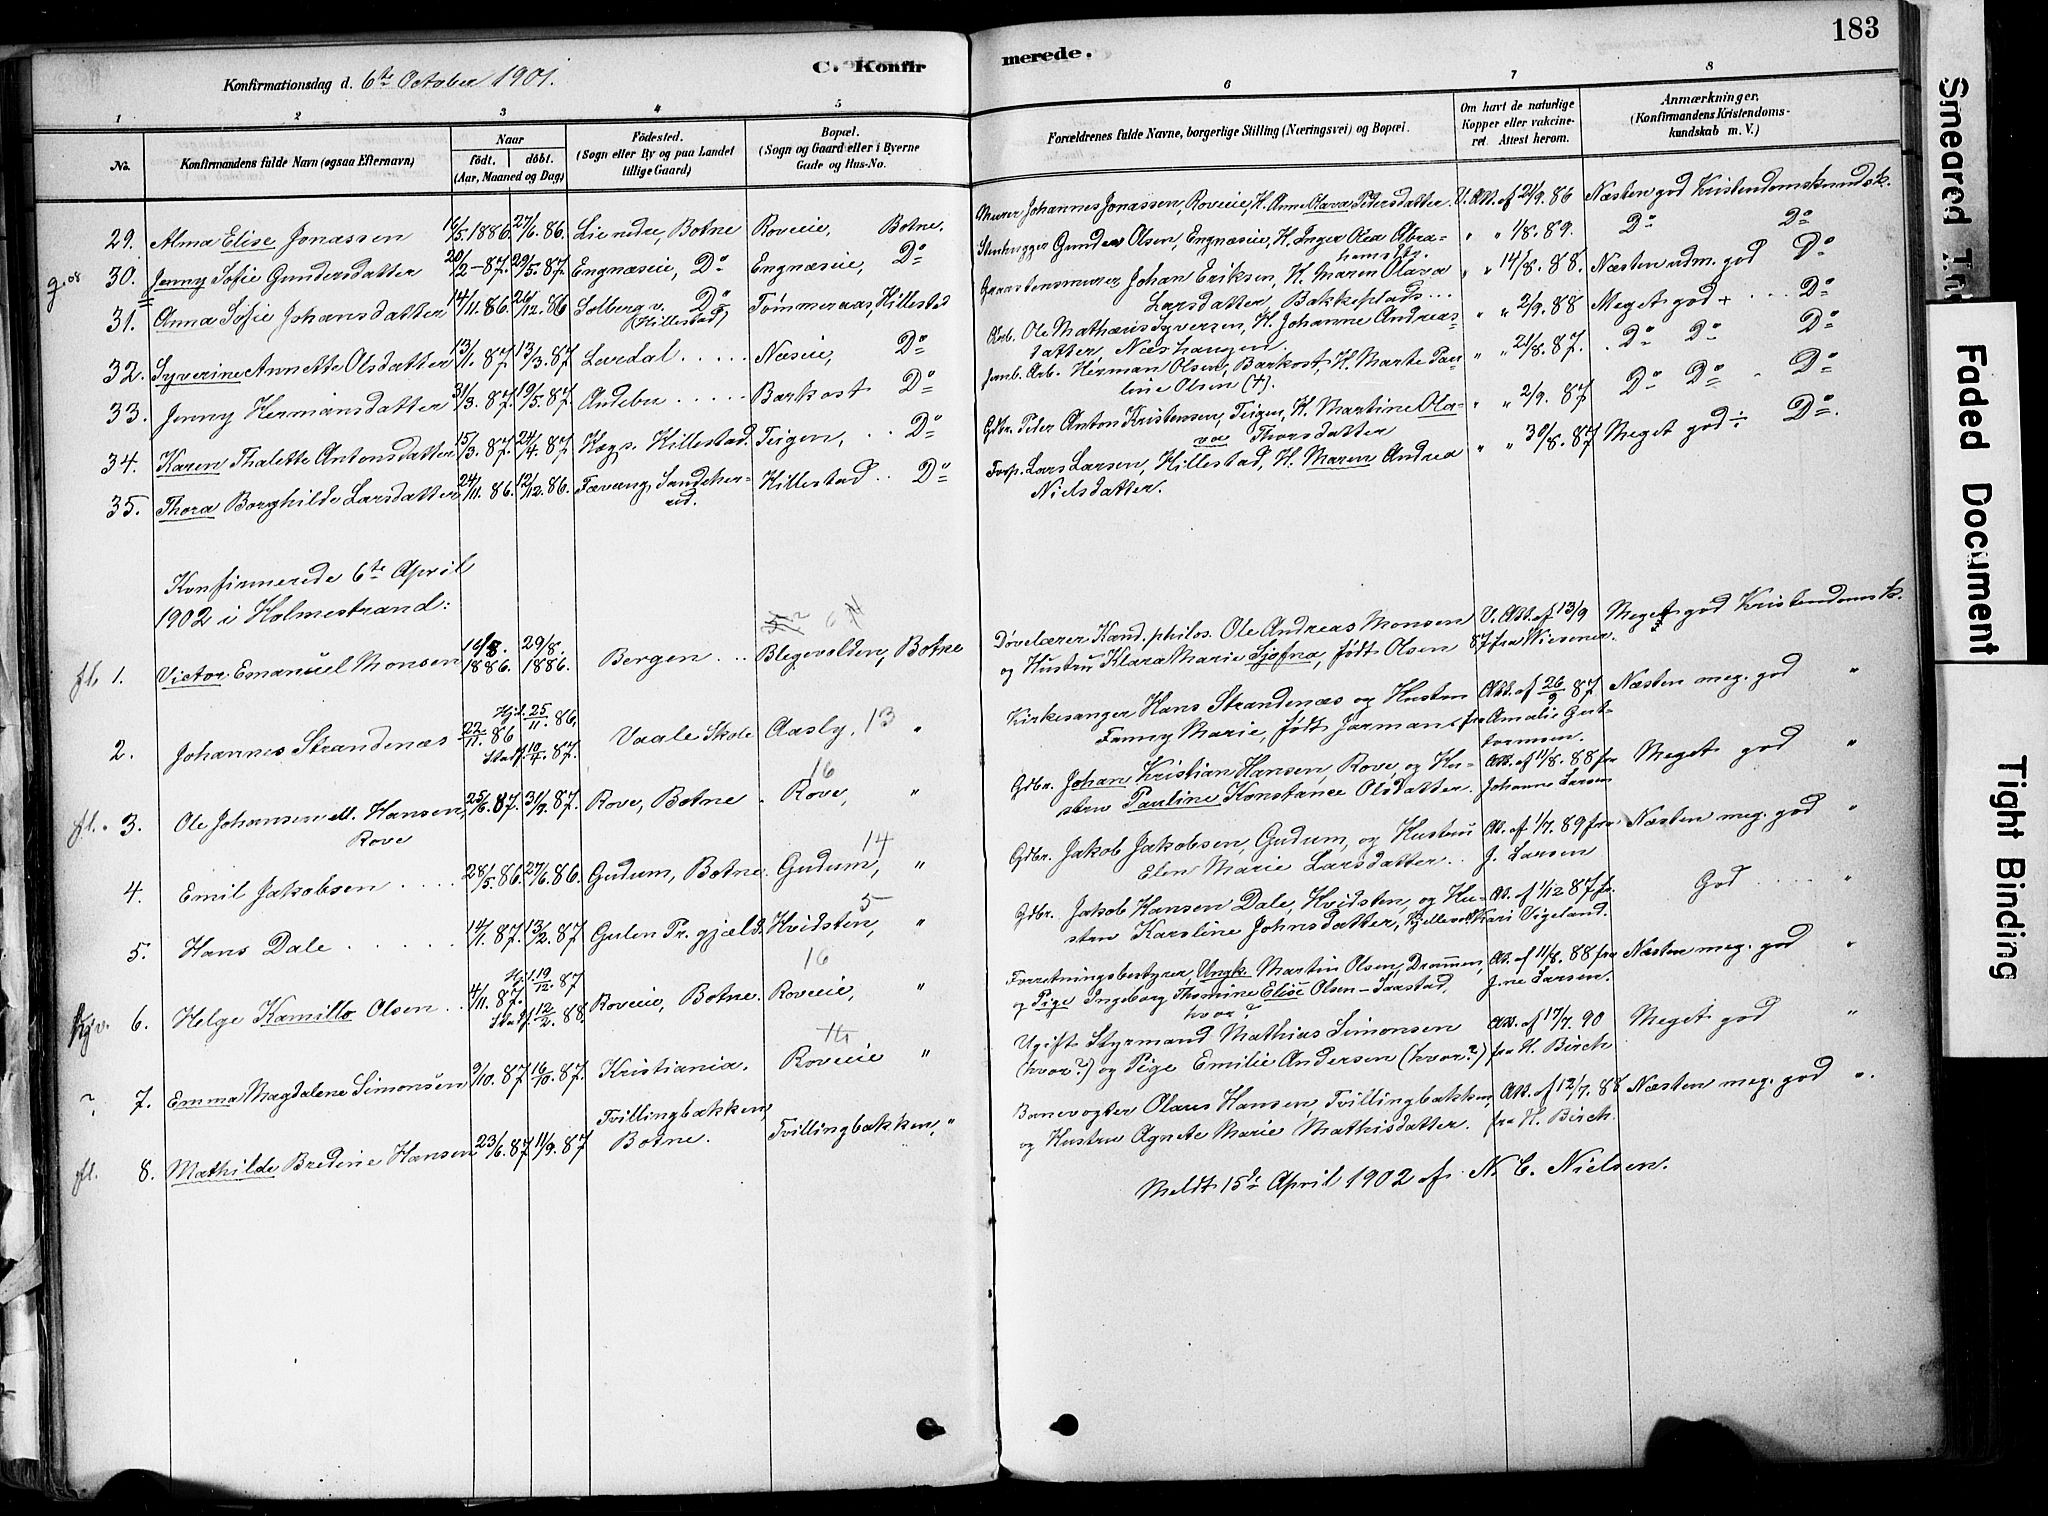 183
C. Konfir
merede.
Konfirmationsdag d. 6te October 1901.
1 2 3 4 5 6 7 8
No. Konfirmandens fulde Navn (ogsaa Efternavn) Naar født, døbt. (Aar, Maaned og Dag) Fødested. (Sogn eller By og paa Landet tillige Gaard) Bopæl. (Sogn og Gaard eller i Byerne Gade og Hus-No. Forældrenes fulde Navne, borgerlige Stilling (Næringsvei) og Bopæl. Om havt de naturlige Kopper eller vakcineret. Attest herom. Anmærkninger, (Konfirmandens Kristendomskundskab m. V.)
29. Alma Elise Jonassen 16/5. 1886. 27/6. 86. Lie nedre, Botne Roveie, Botne. Murer Johannes Jonassen, Roveie, H. Anne Olava Pedersdatter. V. Att. af 21/9. 86 Næsten god Kristendomskundsk.
30. Jenny Sofie Gundersdatter 20/2 - 87. 29/5. 87. Engnæseie, Do Engnæseie, Do Stenhugger Gunder Olsen, Engnæseie, H. Inger Olea Abrahamsdtr. " " 1/8. 89. Do Do
31. Anna Sofie Johansdatter 14/11. 86. 26/12. 86 Solberg v. Do (Hillestad) Tømmeraas, Hillestad Graastensmurer Johan Eriksen, H. Maren Olava Larsdatter, Bakkeplads... " " 14/8. 88. Næsten udm. god Do
32. Syverine Annette Olsdatter 13/1. 87. 13/3. 87. Lardal ..... Næseie, Do Arb. Ole Mathæus Syversen, H. Johanne Andreasdatter, Næshaugen. " " 2/9. 88 Meget god + ... Do
33. Jenny Hermansdatter 31/3. 87. 19/5. 87. Andebu ..... Barkost Do Jernb. Arb. Herman Olsen, Barkost, H. Marte Pauline Olsen (+). " " 21/8. 87. Do Do Do
34. Karen Thalette Antonsdatter 15/3. 87. 24/4. 87 Hegs. Hillestad. Teigen, .. Do Gdbr. Peder Anton Kristensen, Teigen, H. Martine Olava Thorsdatter " " 2/9. 87 Do Do - Do
35. Thora Borghilde Larsdatter 24/11. 86. 12/12. 86. Fævang, Sandeherred. Hillestad .. Do Forp. Lars Larsen, Hillestad, H. Maren Andrea Nielsdatter. " " 30/8. 87 Meget god ÷ Do.
Konfirmerede 6te April
1902 i Holmestrand:
fl. 1. Victor Emanuel Monsen 16/8. 1886. 29/8. 1886. Bergen ... Blegevolden, Botne Døvelærer Kand. philos. Ole Andreas Monsen og Hustru Klara Marie Sjofna, født Olsen V. Att. af 13/9 87 fra Wiesener. Meget god Kristendomsk.
2. Johannes Strandenæs 22/11. 86 Hjd. 25/11. 86. Stadf. 10/4. 87. Vaale Skole Aasly, 13 " Kirkesanger Hans Strandenæs og Hustru Fanny Marie, født Jarmans Att. af 26/9 87 fra Amalie Guttormsen. Næsten meg. god "
fl. 3. Ole Johansen ell. Hansen Rove 25/6. 87. 31/9. 87. Rove, Botne . Rove, 16 " Gdbr. Johan Kristian Hansen, Rove, og Hustru Pauline Konstance Olsdatter. Att. af 11/8. 88 fra Johanne Larsen Meget god "
4. Emil Jakobsen .... 28/5. 86. 27/6. 86. Gudum, Botne. Gudum, 14 " Gdbr. Jakob Jakobsen, Gudum, og Hustru Elen Marie Larsdatter .. Att. af 1/7. 89 fra J. Larsen Næsten meg. god "
5. Hans Dale ...... 14/1. 87. 13/2. 87 Gulen Pr. gjæld. Hvidsten, 5 " Gdbr. Jakob Hansen Dale, Hvidsten, og Hustru Karoline Johnsdatter, Kjellevold Att. af 1/12 87 fr. Kari Vigeland. God .... "
6. Helge Kamillo Olsen .. 4/11. 87. Hjd. 19/12. 87 Stadf. 12/2. 88. Roveie, Botne. Roveie, 16 " Forretningsbestyrer, Ungk. Martin Olsen, Drammen, og Pige Ingeborg Thomine Elise Olsen - Saastad, hvor? Att. af 11/8. 88 fra J.ne Larsen. Næsten meg. god "
7. Emma Magdalene Simonsen 9/10. 87 16/10. 87. Kristiania. Roveie " Ugift Styrmand Mathias Simonsen (hvor?) og Pige Emilie Andersen (hvor?) Att. af 17/7. 90 fra H. Birch Meget god "
fl. 8. Mathilde Bredine Hansen 23/6. 87 11/9. 87 Tvillingbakken, Botne. Tvillingbakken, " Banevogter Olaus Hansen, Tvillingbakken, og Hustru Agnete Marie Mathisdatter. Att. af 12/7. 88 fra H. Birch. Næsten meg. god ".
Meldt 15de April 1902 af N. C. Nielsen.
Smeared
Faded Document
Tight Binding